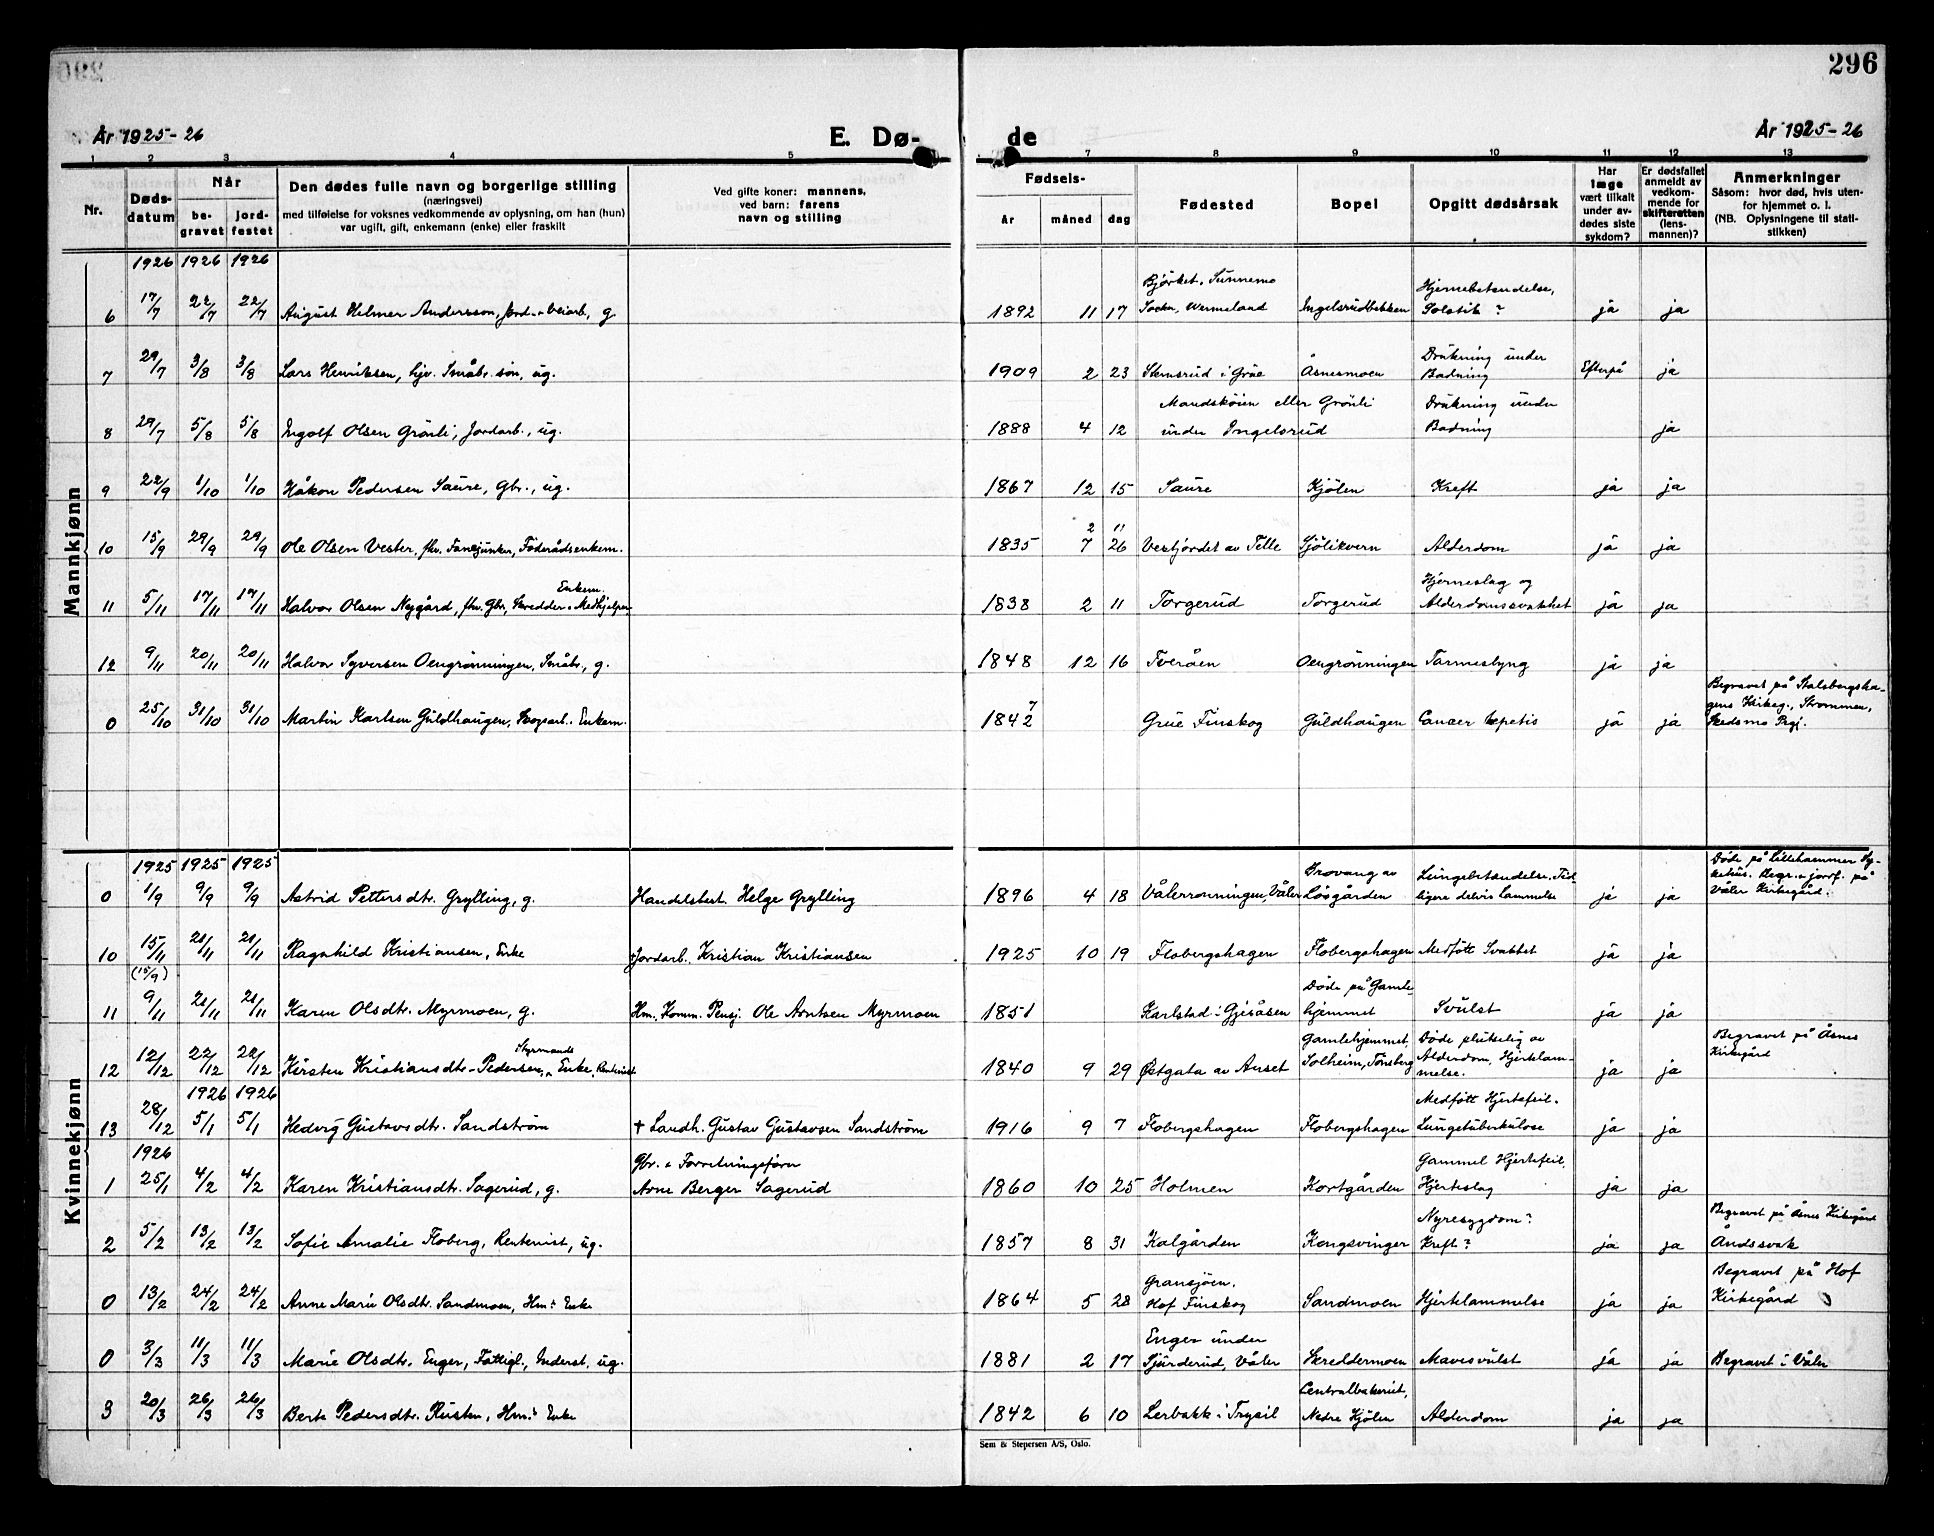 296
År 1925-26
E. Dø-
de
År 1925-26
1 2 3 4 5 7 8 9 10 11 12 13
Nr.
Døds-
datum
Når
be-
gravet
jord-
festet
Den dødes fulle navn og borgerlige stilling
(næringsvei)
med tilføielse for voksnes vedkommende av oplysning, om han (hun)
var ugift, gift, enkemann (enke) eller fraskilt
Ved gifte koner: mannens,
ved barn: farens
navn og stilling
Fødsels-
år måned dag
Fødested
Bopel
Opgitt dødsårsak
Har
læge
vært tilkalt
under av-
dødes siste
sykdom?
Er dødsfallet
anmeldt av
vedkom-
mende for
skifteretten
(lens-
mannen)?
Anmerkninger
Såsom: hvor død, hvis uten-
for hjemmet o. l.
(NB. Oplysningene til stati-
stikken)
Mannkjønn
1926 1926 1926
Bjørket, Sunnemo Hjernebetendelse,
6 17/7 22/7 22/7 August Helmer Andersson, Jord- o. veiarb., g. 1892 11 17 Sockn, Wermeland Ingelsrudbekken Solstik? ja ja
Drukning under
7 29/7 3/8 3/8 Lars Henriksen, Småbr. søn, ug. 1909 2 23 Stemsrud i Grue Åsnesmoen Badning Efterpå ja
Mandskøien eller Grönli Drukning under
8 29/7 5/8 5/8 Ingolf Olsen Grönli, Jordarb., ug. 1888 4 12 under Ingelsrud Badning ja
9 22/9 1/10 1/10 Håkon Pedersen Saure, Gbr., ug. 1867 12 15 Saure Kjölen Kreft ja ja
2 11
10 15/9 29/9 29/9 Ole Olsen Vester, fhv. Fanejunker, Föderådsenkem. 1835 7 26 Vestjordet av Telle Sjölikvern Alderdom ja ja
Enkem. Hjerneslag og
11 5/11 17/11 17/11 Halvor Olsen Nygård, fhv. Gbr., Skredder o. Medhjelper 1838 2 11 Torgerud Torgerud Alderdomssvakhet ja ja
12 9/11 20/11 20/11 Halvor Syversen Oengrönningen, Småbr., g. 1848 12 16 Tveråen Oengrönningen Tarmeslyng ja ja
Begravet på Stalsbergsha-
gens Kirkeg., Strommen,
7
0 25/10 31/10 31/10 Martin Karlsen Guldhaugen, Skogsarb. Enkem. 1842 Grue Finskog Guldhaugen Cancer hepatis ja ja Skedsmo Prgj.
Kvinnekjønn
1925 1925 1925
Trovang av Lungebetendelse, Tid- Döde på Lillehammer Sy-
kehus. Begr. o. jordf. på
0 1/9 9/9 9/9 Astrid Pettersdtr. Grylling, g. Handelsbest. Helge Grylling 1896 4 18 Vålerronningen, Våler Lösgården ligere delvis Lammelse ja ja Våler Kirkegård.
10 15/11 21/11 21/11 Ragnhild Kristiansen, Enke + Jordarb. Kristian Kristiansen 1925 10 19 Flobergshagen Flobergshagen Medfött Svakhet ja ja
(15/9) Döde på Gamle-
11 9/11 21/11 21/11 Karen Olsdtr. Myrmoen, g. Hm., Komm. Pensj. Ole Arntsen Myrmoen 1851 Karlstad i Gjesåsen hjemmet Svulst ja ja
Styrmands Gamlehjemmet, Döde plutselig av Begravet på Åsnes
12 12/12 22/12 22/12 Kirsten Kristiansdtr. Pedersen, Enke, Rentenist 1840 9 29 Östgata av Auset Solheim, Tönsberg Alderdom, Hjertelam- ja ja Kirkegård
melse.
1926 1926
Medfött Hjertefeil.
13 28/12 5/1 5/1 Hedvig Gustavsdtr. Sandström + Landh. Gustav Gustavsen Sandström 1916 9 7 Flobergshagen Flobergshagen Lungetuberkulose ja ja
1926
Gbr. o. Forretningsförer Gammel Hjertefeil,
1 25/1 4/2 4/2 Karen Kristiansdtr. Sagerud, g. Arne Berger Sagerud 1860 10 25 Holmen Kortgården Hjerteslag ja ja
Nyresygdom? Begravet på Åsnes Kirkegård
2 5/2 13/2 13/2 Sofie Amalie Floberg, Rentenist, ug. 1857 8 31 Kalgården Kongsvinger Kreft? ja ja Åndssvak
Gransjöen, Begravet på Hof
0 13/2 24/2 24/2 Anne Marie Olsdtr. Sandmoen, Hm.s Enke 1864 5 28 Hof Finskog Sandmoen Hjertelammelse ja ja Kirkegård
Enger under
0 3/3 11/3 11/3 Marie Olsdtr. Enger, Fattigl., Inderst, ug. 1881 2 17 Tjurderud, Våler Skreddermoen Mavesvulst ja ja Begravet i Våler
Centralbakeriet,
3 20/3 26/3 26/3 Berte Pedersdtr. Rusten, Hm.s Enke 1842 6 10 Lerbakk i Trysil Nedre Kjölen Alderdom ja ja
Sem & Stepersen A/S, Oslo.